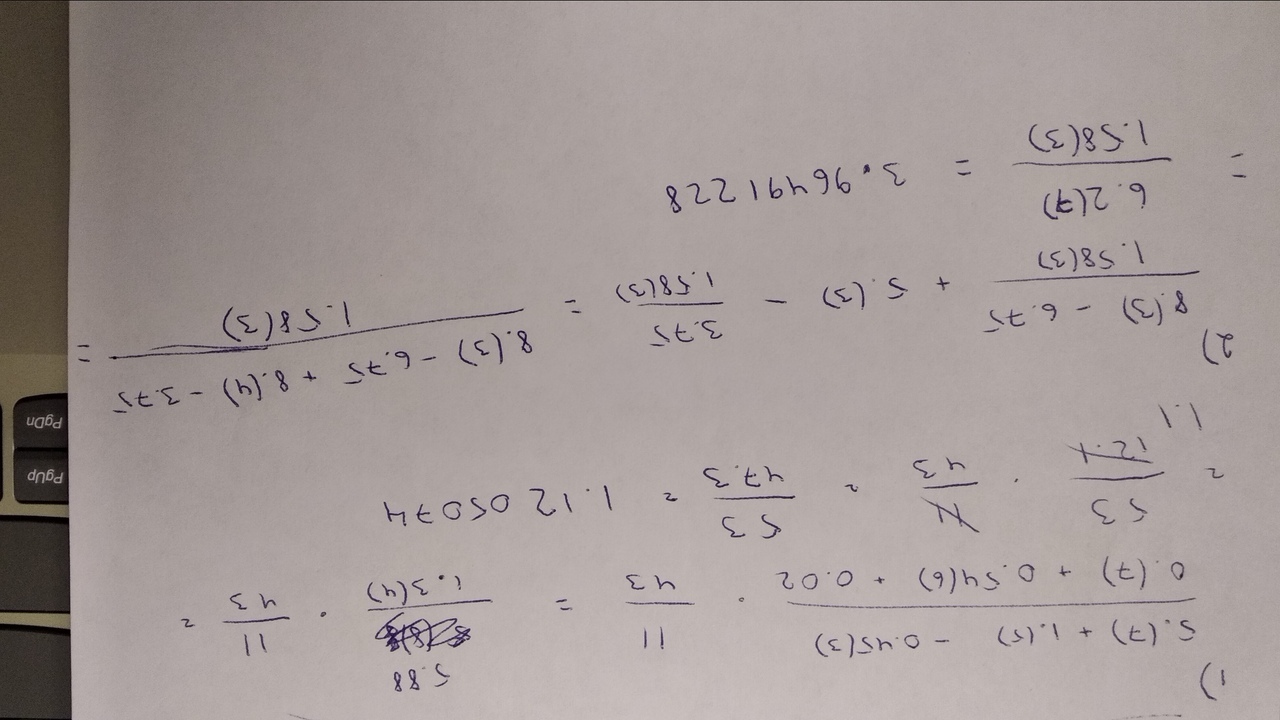 1)
5.88
5.(7) + 1.(5) - 0.45(3) / 0.(7) + 0.54(6) + 0.02 · 11/43 = 5.88/1.3(4) · 11/43 =
= 53/12.1 · 11/43 = 53/47.3 = 1.1205074
1.1
2)
8.(3) - 6.75 / 1.58(3) + 5.(3) - 3.75/1.58(3) = 8.(3) - 6.75 + 8.(4) - 3.75 / 1.58(3) =
= 6.2(7)/1.58(3) = 3.96491228
PgUp
PgDn